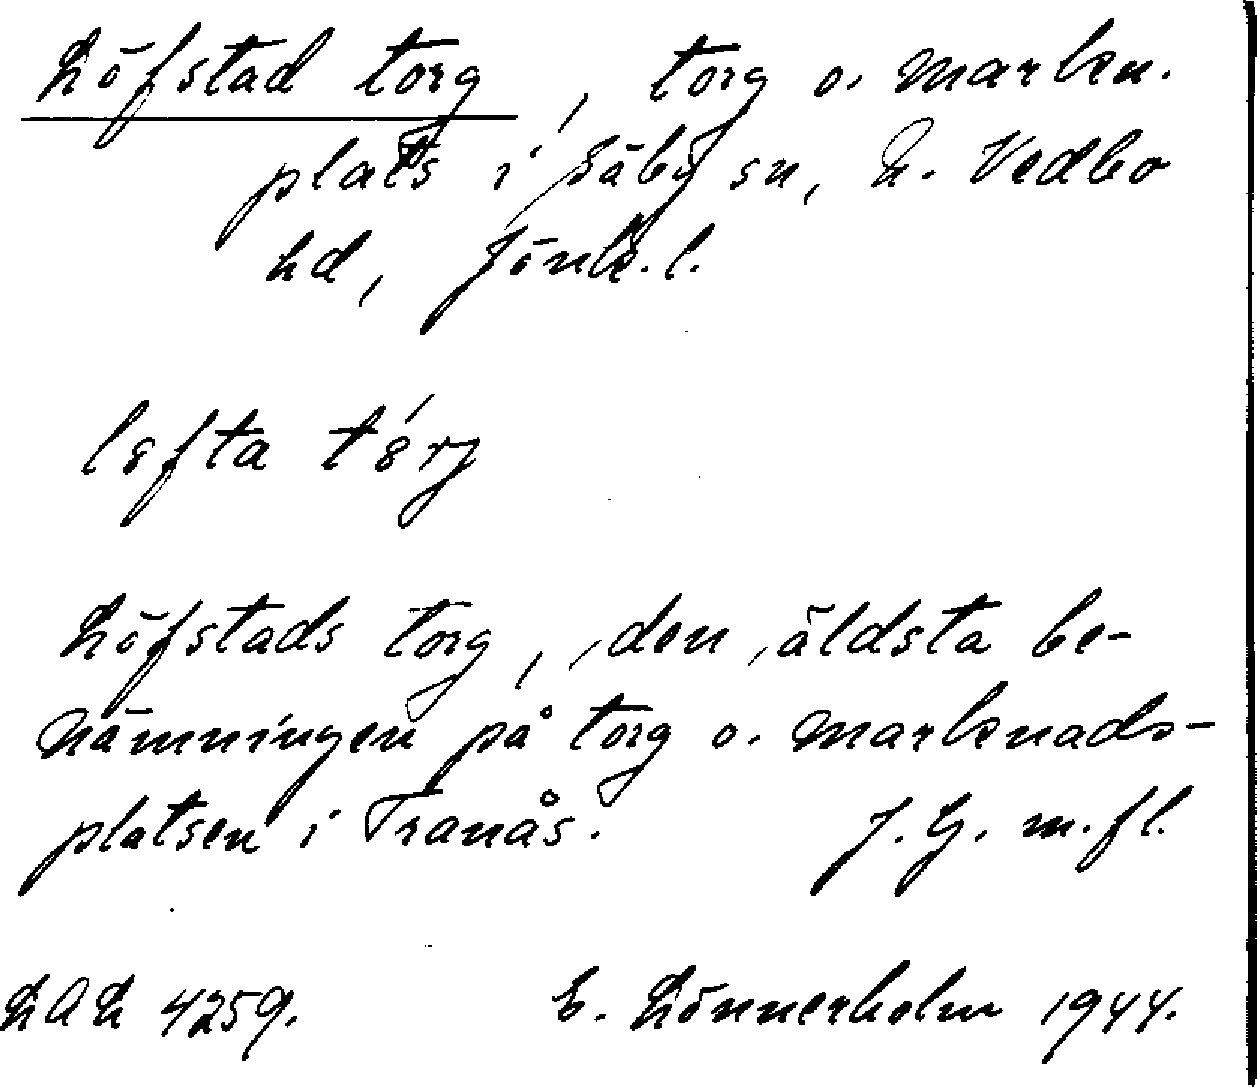 Löfstad torg, torg o. markn.
plats i Säby sn, N. Vedbo
hd, Jönk.l.
lefta térj
Löfstads torg, den äldsta be-
nämningen på torg o. marknads-
platsen i Tranås. J.G. m.fl.
4259. E. Lönnerholm 1944.